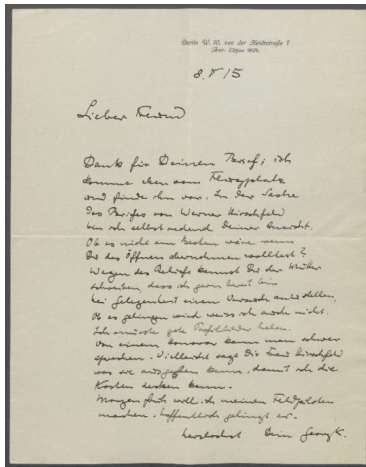 Berlin W. 10, von der Heydtstraße 7
8. V 15
Lieber Freund
Dank für Deinen Brief; ich
komme eben vom Flugplatz
und finde ihn vor. In der Sache
des Briefes von Werner Hirschfeld
bin ich selbstredend Deiner Ansicht.
Ob es nicht am besten wäre wenn
Du das Öffnen übernehmen wolltest?
Wegen des Reliefs kannst Du der Mutter
schreiben, dass ich gern bereit bin
bei Gelegenheit einen Versuch anzustellen,
Ob es gelingen wird weiss ich auch nicht.
Ich müsste gute Profilbilder haben.
Von einem Honorar kann man schwer
sprechen. Vielleicht sagt Dir Frau Hirschfeld
was sie ausgeben kann, damit ich die
Kosten decken kann.
Morgen früh will ich meinen Feldpiloten
machen. Hoffentlich gelingt es.
herzlichst Dein Georg K.